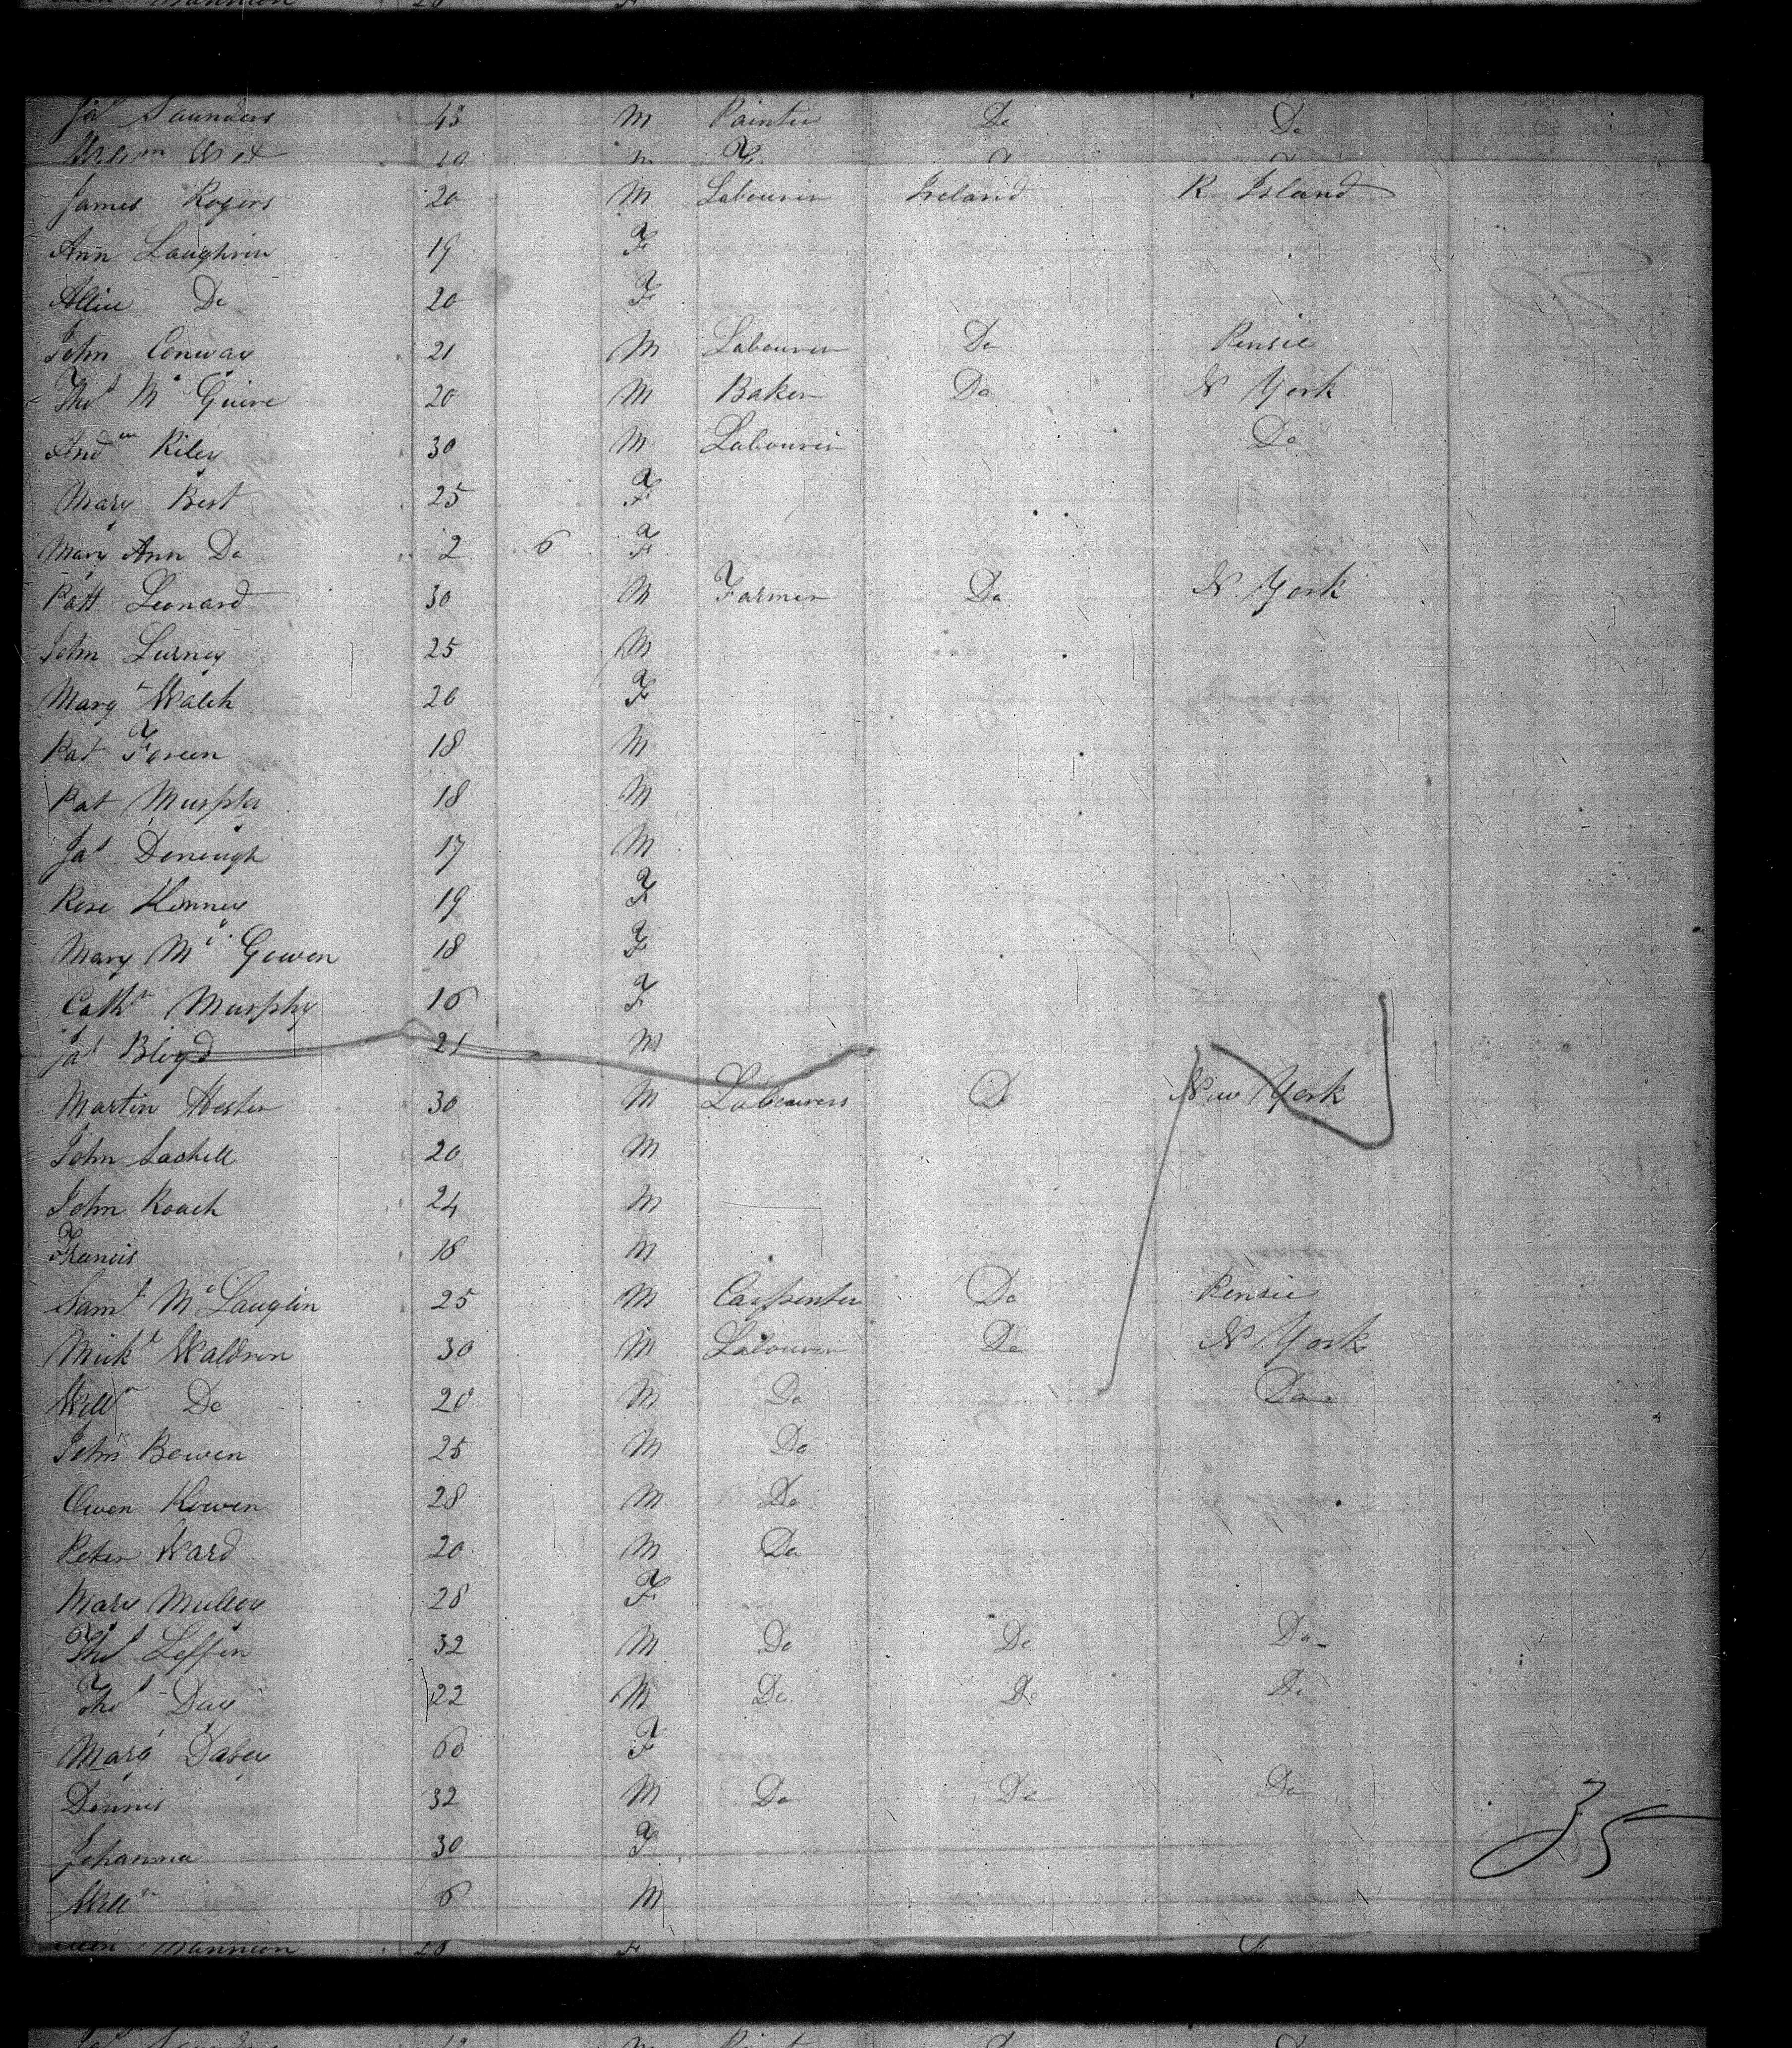 Jas Saunders 43 M Painter Do Do
James Rogers 20 M Labourer Ireland R. Island
Ann Laughrin 19 F
Alice Do 20 F
John Conway 21 M Labourer Do Pensie
Thos Mc Guire 20 M Baker Do N York
Andw Riley 30 M Labourer Do
Mary Best 25 F
Mary Ann Do 2 6 F
Patt Leonard 30 M Farmer Do N. York
John Lurney 25 M
Margt Walch 20 F
Pat Foreen 18 M
Pat Murphy 18 M
Jas Donough 17 M
Rose Kenney 19 F
Mary Mc Gowen 18 F
Cathn Murphy 16 F
Jas Bloyd 21 M
Martin Hester 30 M Labourers Do New York
John Lashell 20 M
John Roach 24 M
Francis 18 M
Saml Mc Lauglin 25 M Carpenter Do Pensie
Mickl Waldron 30 M Labourer Do N York
Willm Do 20 M Do Do
John Bowen 25 M Do
Owen Kowen 28 M Do
Peter Ward 20 M Do
Mary Mulloy 28 F
Thos Leffen 32 M Do Do Do
Thos Day 22 M Do Do Do
Marg Daley 60 F
Dennis 32 M Do Do Do
Johanna 30 F
35
Willm 6 M
Mannion 20 F